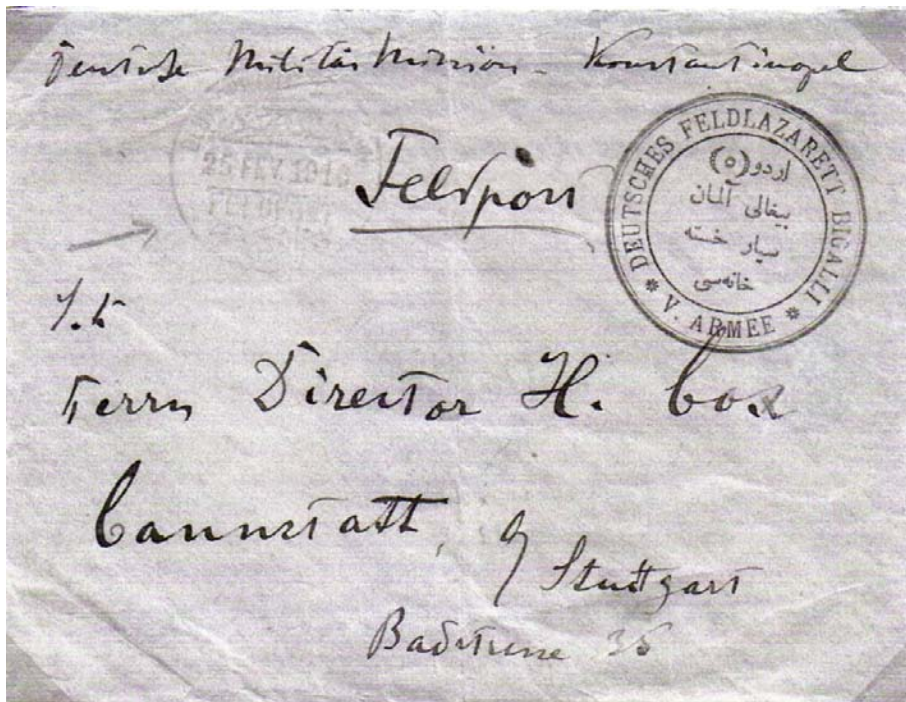 Deutsche Militär Mission - Konstantinopel
25 FEV. 1916
FELDPOST
Feldpost
* DEUTSCHES FELDLAZARETT BIGALLI *
V. ARMEE
اردو (٥)
بيغالى آلمان
سيار خسته
خانه‌سى
Herrn Director H. Cox
Cannstatt,
Stuttgart
Badstrasse 35